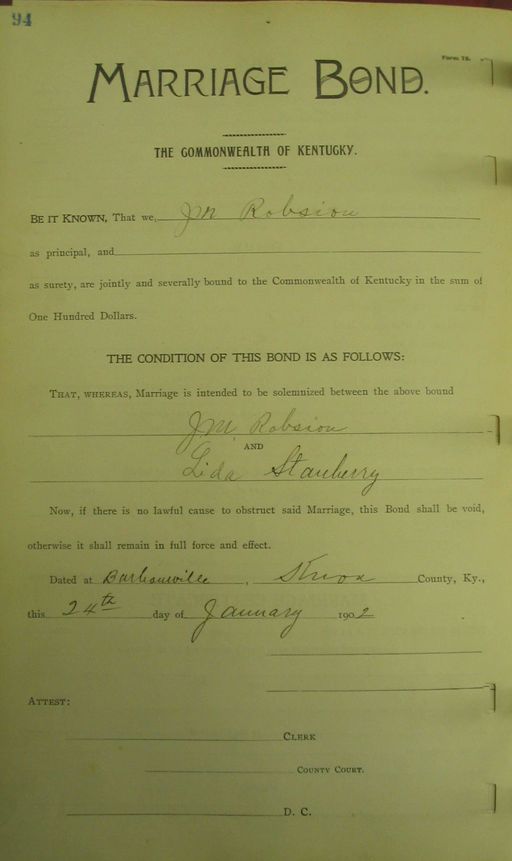 94
Form 78.
MARRIAGE BOND.
THE COMMONWEALTH OF KENTUCKY.
BE IT KNOWN, That we, JM Robsion
as principal, and
as surety, are jointly and severally bound to the Commonwealth of Kentucky in the sum of
One Hundred Dollars.
THE CONDITION OF THIS BOND IS AS FOLLOWS:
THAT, WHEREAS, Marriage is intended to be solemnized between the above bound
JM Robsion
AND
Lida Stanberry
Now, if there is no lawful cause to obstruct said Marriage, this Bond shall be void,
otherwise it shall remain in full force and effect.
Dated at Barbourville, Knox County, Ky.,
this 24th day of January 1902
ATTEST:
CLERK
COUNTY COURT.
D. C.